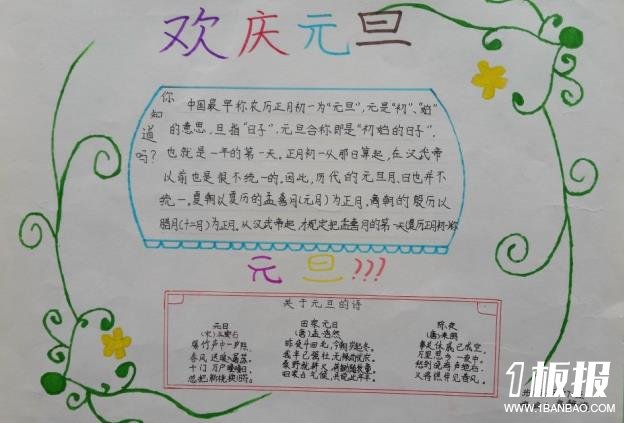 欢庆元旦
你知道吗?
中国最早称农历正月初一为“元旦”,元是“初”、“始”
的意思,旦指“日子”,元旦合称即是“初始的日子”,
也就是一年的第一天。正月初一从那日算起,在汉武帝
以前也是很不统一的,因此,历代的元旦月、日也并不
统一。夏朝以夏历的孟喜月(元月)为正月,商朝的殷历以
腊月(十二月)为正月,从汉武帝起,才规定把孟喜月的第一天(夏历正月初一)称
元旦???
关于元旦的诗
元日
(宋)王安石
爆竹声中一岁除,
春风送暖入屠苏。
千门万户曈曈日,
总把新桃换旧符。
田家元日
(唐)孟浩然
昨夜斗回北,今朝岁起东。
我年已强仕,无禄尚忧农。
桑野就耕父,荷锄随牧童。
田家占气候,共说此年丰。
除夜
(唐)来鹄
事关休戚已成空,
万里思一夜中。
愁到晓鸡声绝后,
又将憔悴见春风。
1板报
WWW.1BANBAO.COM